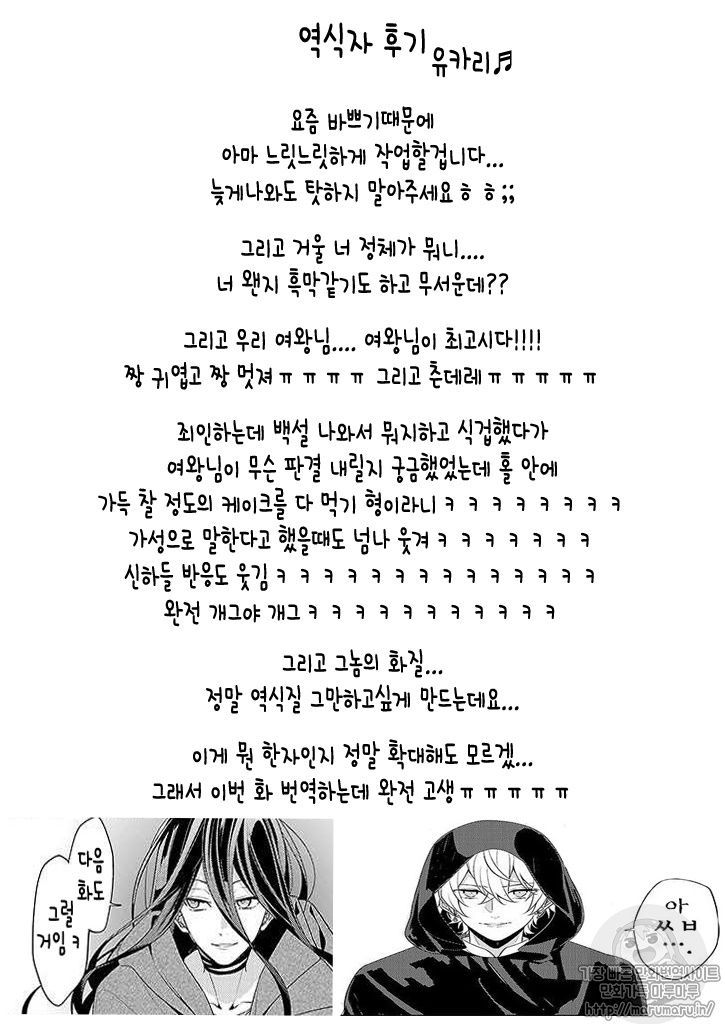 역식자 후기
유카리♬
요즘 바쁘기때문에
아마 느릿느릿하게 작업할겁니다...
늦게나와도 탓하지 말아주세요ㅎㅎ;;
그리고 거울 너 정체가 뭐니....
너 왠지 흑막같기도 하고 무서운데??
그리고 우리 여왕님.... 여왕님이 최고시다!!!!
짱 귀엽고 짱 멋져ㅠㅠㅠㅠ 그리고 츤데레ㅠㅠㅠㅠㅠ
죄인하는데 백설 나와서 뭐지하고 식겁했다가
여왕님이 무슨 판결 내릴지 궁금했었는데 홀 안에
가득 찰 정도의 케이크를 다 먹기 형이라니ㅋㅋㅋㅋㅋㅋㅋㅋ
가성으로 말한다고 했을때도 넘나 웃겨ㅋㅋㅋㅋㅋㅋㅋ
신하들 반응도 웃김ㅋㅋㅋㅋㅋㅋㅋㅋㅋㅋㅋㅋㅋㅋ
완전 개그야 개그ㅋㅋㅋㅋㅋㅋㅋㅋㅋㅋㅋ
그리고 그놈의 화질...
정말 역식질 그만하고싶게 만드는데요...
이게 뭔 한자인지 정말 확대해도 모르겠...
그래서 이번 화 번역하는데 완전 고생ㅠㅠㅠㅠㅠ
다음
화도
그럴
거임ㅋ
아
ㅆㅂ
....
가장 빠른 만화번역사이트
만화가득 마루마루
http://marumaru.in/